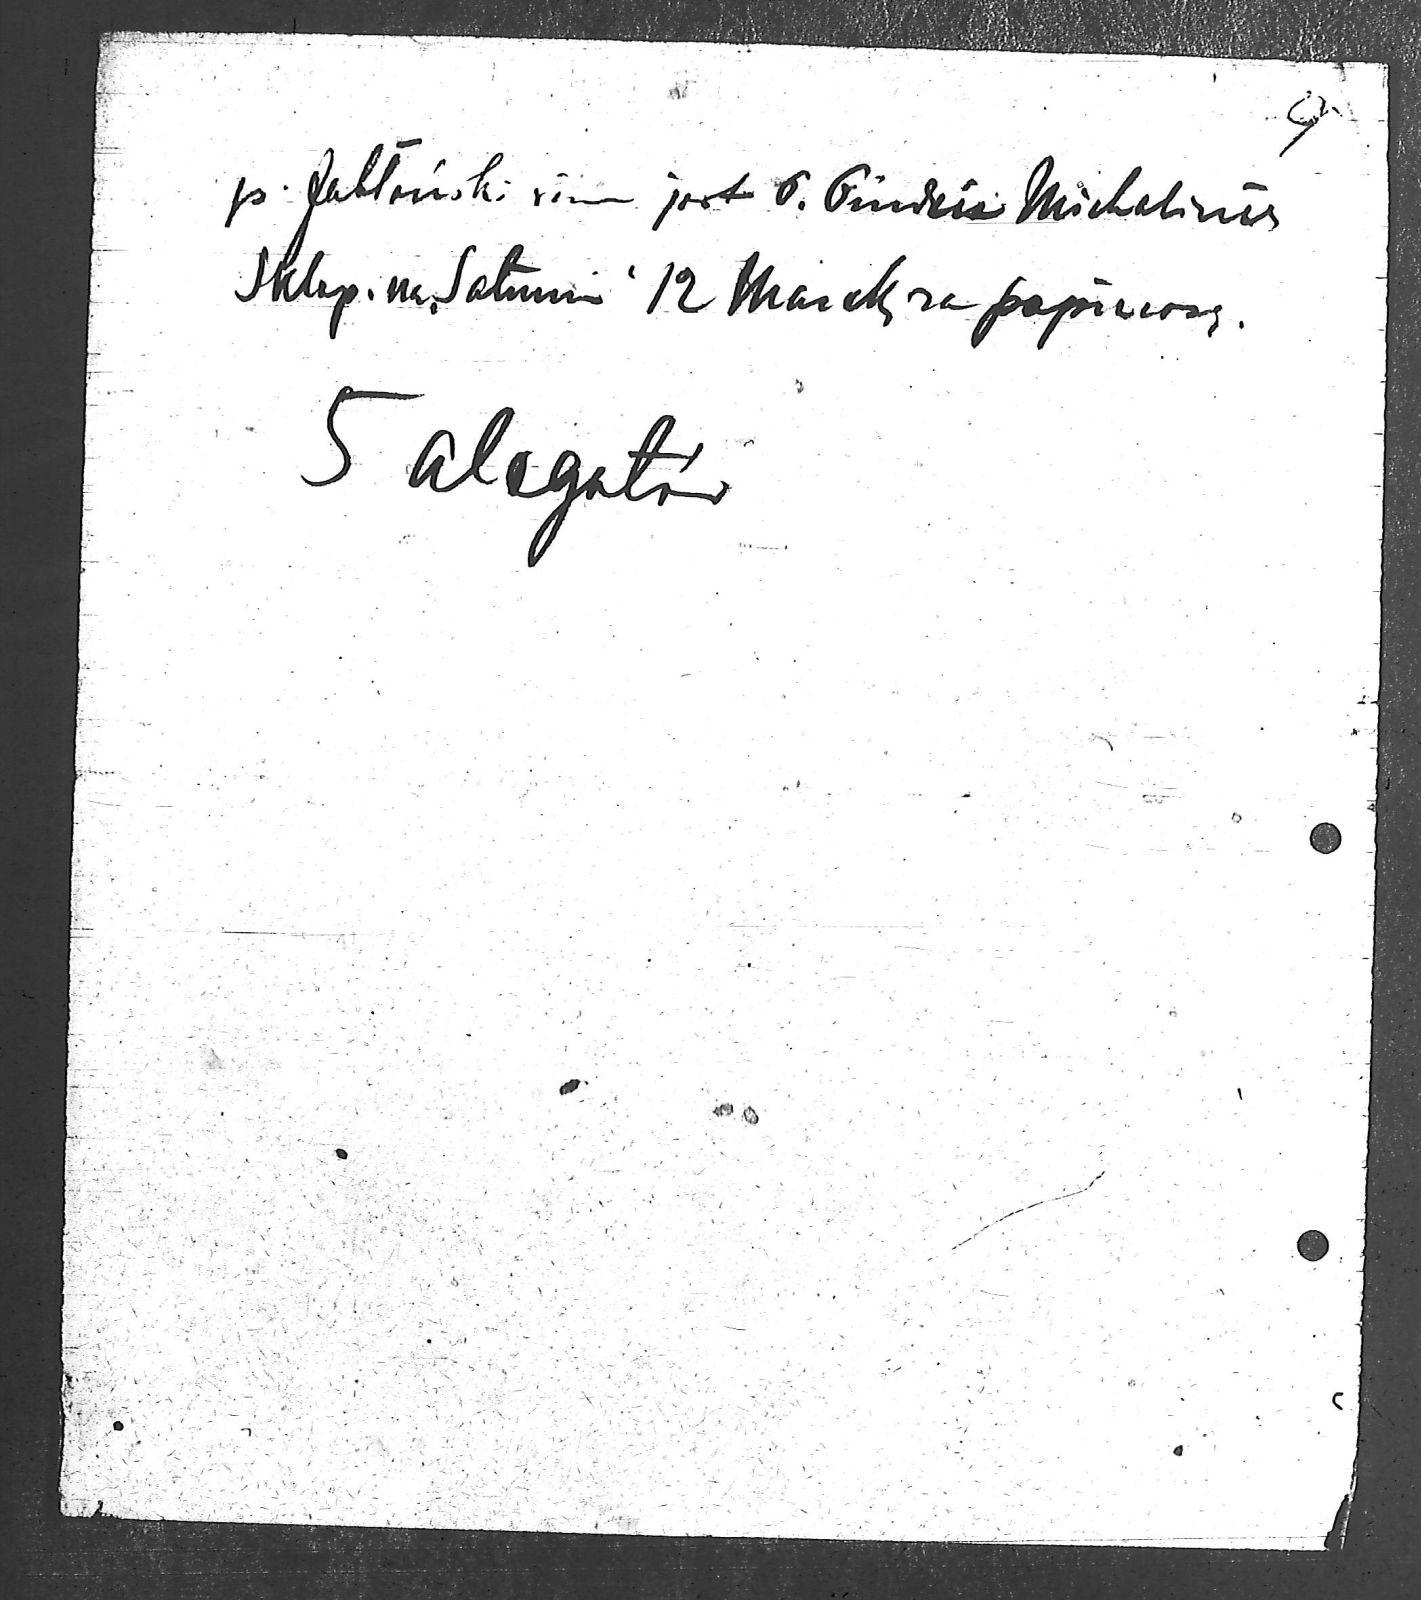 p. Jabłoński winien jest O. Michalinie
Sklep. na „Saturnie" 12 Marek za papierosy.
5 alegatów